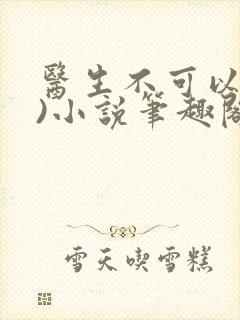 醫生不可以
)小說筆趣閣
雪天喫雪糕